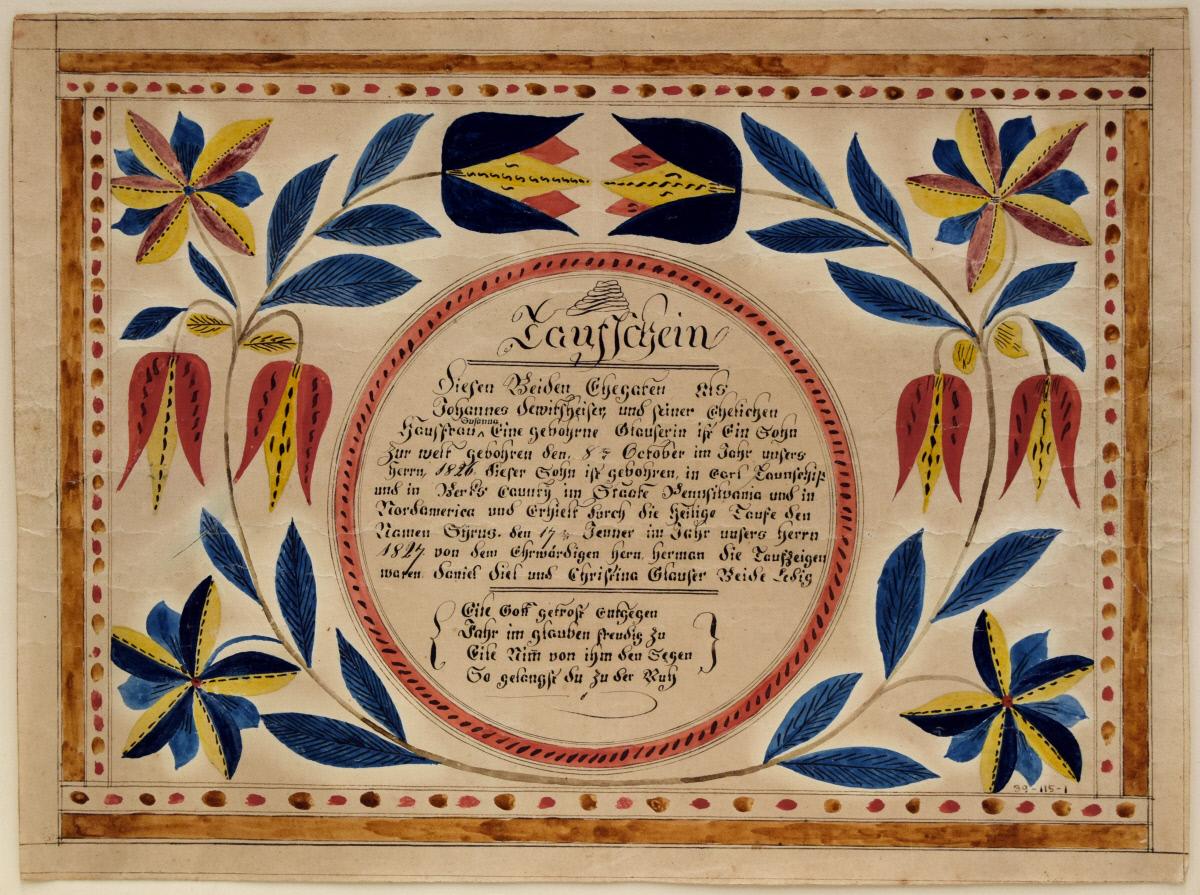 Taufschein
Diesen Beiden Ehegaten Als
Johannes Dewitsheiser, und seiner Ehelichen
Hausfrau Susanna Eine gebohrne Glauserin ist Ein Sohn
zur welt gebohren den 8ten October im Jahr unsers
Herrn 1826 dieser Sohn ist gebohren, in Earl Taunschip
und in Berks Caunty im Staate Pennsilvania und in
Nordamerica und Erhielt durch die Heilige Taufe den
Namen Syrus. den 17ten Jenner im Jahr unsers Herrn
1827 von dem Ehrwürdigen Hern Herman die Taufzeigen
waren Daniel Diel und Christina Glauser Beide Ledig
Eile Gott getrost Entgegen
Fahr im glauben freudig zu
Eile Nim̄ von ihm den Segen
So gelangst du zu der Ruh
39-115-1